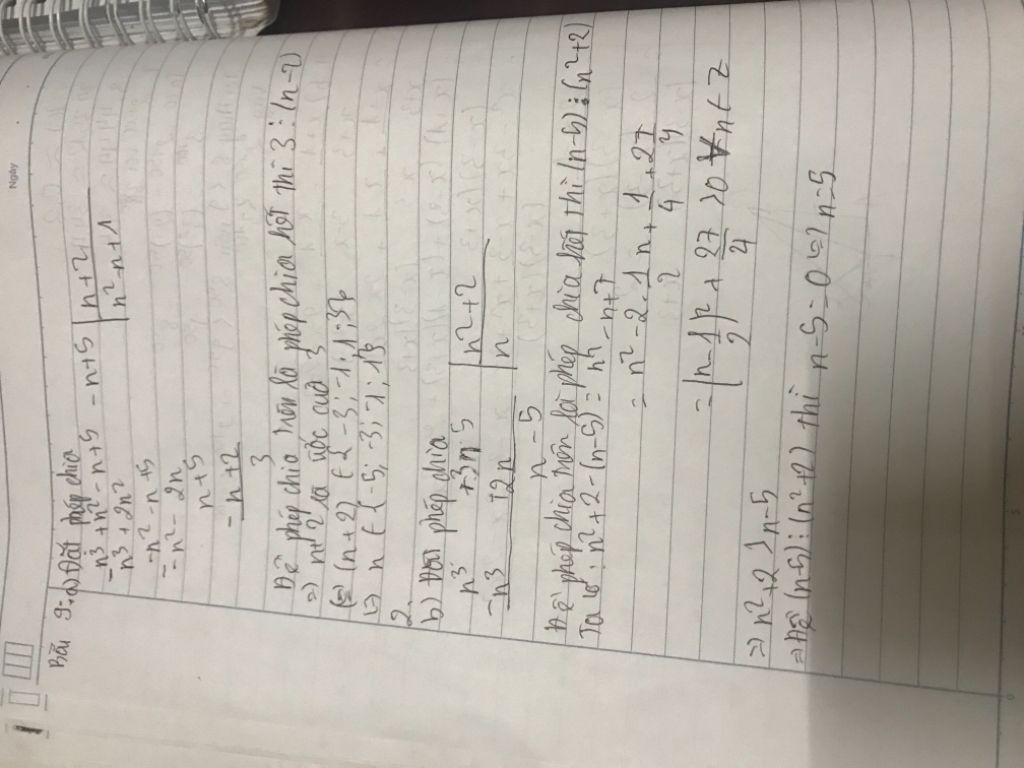 Ngày
Bài 9: a) Đặt phép chia
n³ + n² - n + 5 - n + 5 | n + 2
n³ + 2n² | n² - n + 1
- n² - n + 5
- n² - 2n
n + 5
- n + 2
3
Để phép chia trên là phép chia hết thì 3 ⋮ (n - 2)
=> n + 2 là ước của 3
(=) (n + 2) ∈ { - 3; -1; 1; 3}
(=) n ∈ { -5; -3; -1; 1}
2.
b) phép chia
n³ + 3n 5 | n² + 2
- n³ + 2n | n
n - 5
Để phép chia trên là phép chia hết thì (n - 5) ⋮ (n² + 2)
Ta có: n² + 2 - (n - 5) = n² - n + 7
= n² - 2 . 1/2 n + 1/4 + 27/4
= (n - 1/2)² + 27/4 > 0 ∀ n ∈ Z
=> n² + 2 > n - 5
=> Để (n - 5) ⋮ (n² + 2) thì n - 5 = 0 => n = 5